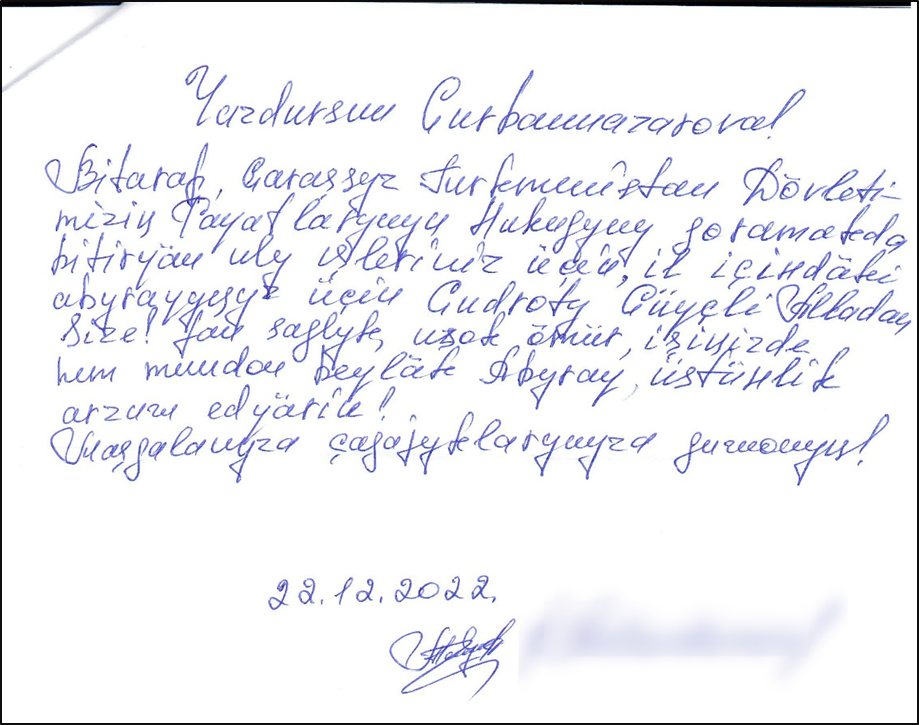 Yazdursun Gurbannazarova!
Bitarap, Garaşsyz Türkmenistan Döwleti-
miziň Raýatlarynyň Hukugyny goramakda
bitirýän uly işleriňiz üçin, il içindäki
abyraýyňyz üçin Gudrotly Güýçli Alladan
Size! Jan saglyk, uzak ömür, işiňizde
hem mundan beýläk Abyraý, üstünlik
arzuw edýärin!
Maşgalaňyza çagajyklaryňyza guwanyň!
22.12.2022.